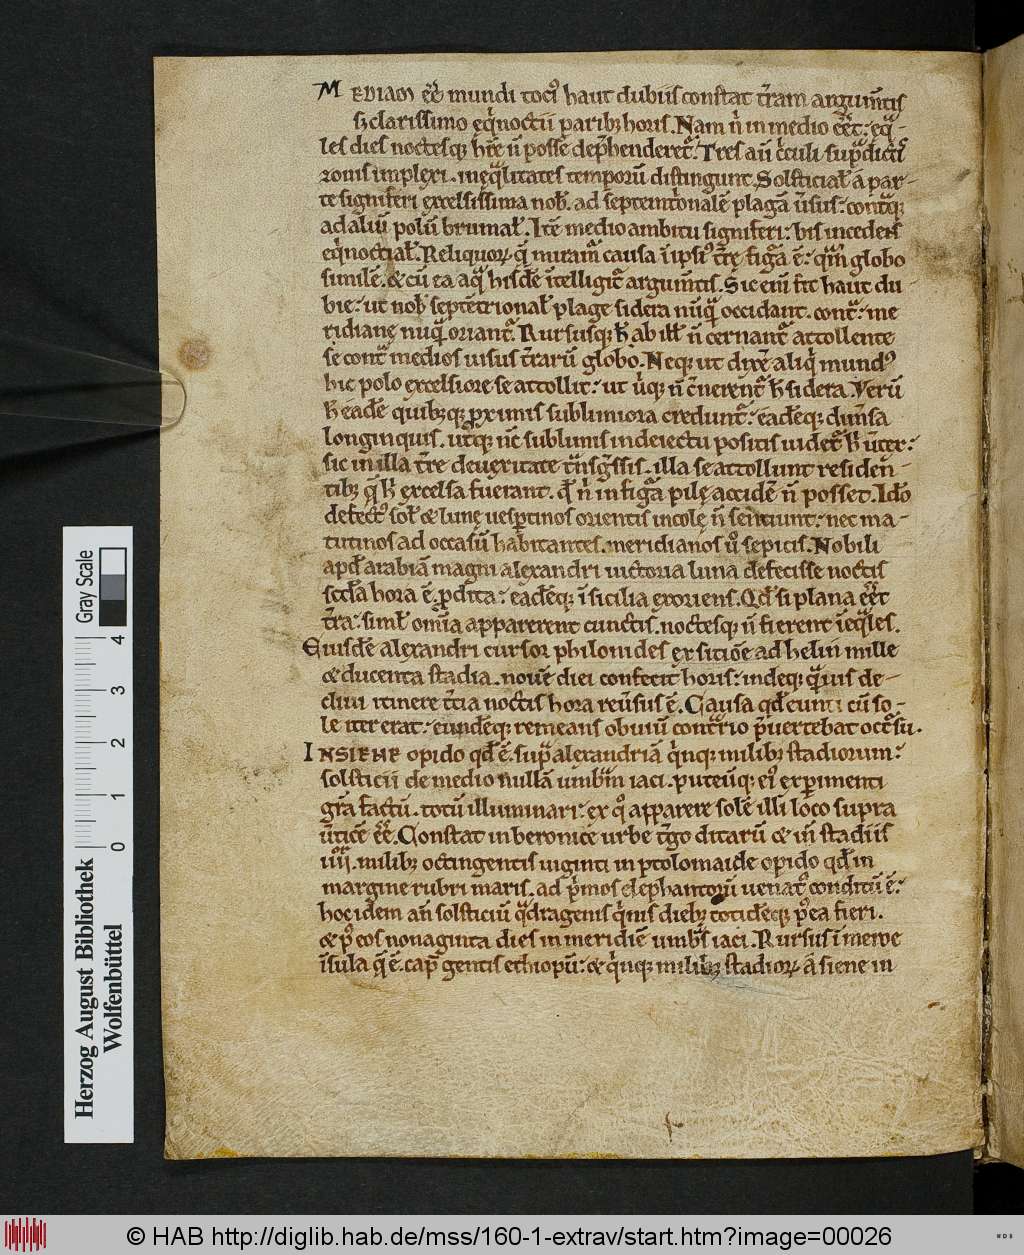 M EDIAM eē mundi toci⁹ haut dubiis constat t̄ram argum̄tis
sꝫ clarissimo eq̄noctii paribꝫ horis. Nam n̄ in medio eēt: eq̄-
les dies noctesqꝫ hr̄e n̄ posse dep̄henderet᷑. Tres aū c̄culi sup̄dicti
ronis implexi. ineq̄litates temporū distingunt. Solsticial̓ a par-
te signiferi excelsissima nob̓. ad septemt̓onalē plagā ūsus: contraqꝫ
ad aliū polū brumal̓. Itē medio ambitu signiferi: bis incedens
eq̄noctial̓. Reliquoꝝ q̄ miram̄ causa ī ipsi⁹ t̄rę figa ē: qm̄ globo
similē. & cū ea aq̄ hisdē ītelligit᷑ argum̄tis. Sic enī fit haut du-
bie: ut nob̓ septētrional̓ plage sidera nūq̄ occidant. cont᷑: me
ridianę nūq̄ oriant᷑. Rursusqꝫ h̄ ab ill̓ n̄ cernant᷑ attollente
se cont᷑ medios uisus t̄rarū globo. Neqꝫ ut dixē aliq̄ mund⁹
hic polo excelsiore se attollit: ut ūqꝫ n̄ c̄nerent᷑ h̄ sidera. Verū
h̄ eadē quibꝫqꝫ ꝓximis sublimiora credunt᷑: eadēqꝫ dim̄sa
longinquis. utqꝫ nc̄ sublimis in deiectu positis uidet᷑ h̄ ūter:
sic in illa t̄re deueritate t̄nsg̓ssis. illa se attollunt residen-
tibꝫ q̄ h̄ excelsa fuerant. qd̓ n̄ in figa pilę accidē n̄ posset. Ido̓
defect⁹ sol̓ & lunę uesꝑtinos orientis incolę n̄ sentiunt: nec ma-
tutinos ad occasū habitantes. meridianos u̓o sepicis. Nobili
apd̓ arabiam magni alexandri uictoria luna defecisse noctis
scd̓a hora ē ꝓdita: eadēqꝫ ī sicilia exoriens. Qd̓ si plana eēt
t̄ra: siml̓ omīa apparerent cunctis. noctesqꝫ n̄ fierent īeq̄les.
Eiusdē alexandri cursor philonides ex sitiōe ad helim mille
& ducenta stadia. nouē diei confecit horis: indeqꝫ q̄uis de-
cliui itinere t̄tia noctis hora reūsus ē. Causa qd̓ eunti cū so-
le iter erat: eundēqꝫ remeans obuiū contrario p̄uertebat occ̓su.
INSIENE opido qd̓ ē. sup̄ alexandriā q̄nqꝫ milibꝫ stadiorum:
solsticii de medio nullā umbrā iaci. puteūqꝫ ei⁹ exꝑimenti
gr̄a factū. totū illuminari: ex q̊ apparere solē illi loco supra
ūticē eē. Constat in beronice urbe t̓godita̓rū & in stadiis
iiii. milibꝫ octingentis uiginti in ptolomaide opido qd̓ in
margine rubri maris. ad p̄mos elephantorū uenat⁹ conditū ē:
hoc idem an̄ solsticiū q̄dragenis q̄nis diebꝫ totidēqꝫ p⁹ea fieri.
& p⁹ eos nonaginta dies in meridiē umbr̄s iaci. Rursus ī meroe
īsula q̄ ē. capd̓ gentis ethiopū: & q̄nqꝫ milibꝫ stadioꝝ a siene in
Gray Scale
0 1 2 3 4
Herzog August Bibliothek
Wolfenbüttel
© HAB http://diglib.hab.de/mss/160-1-extrav/start.htm?image=00026
WDB